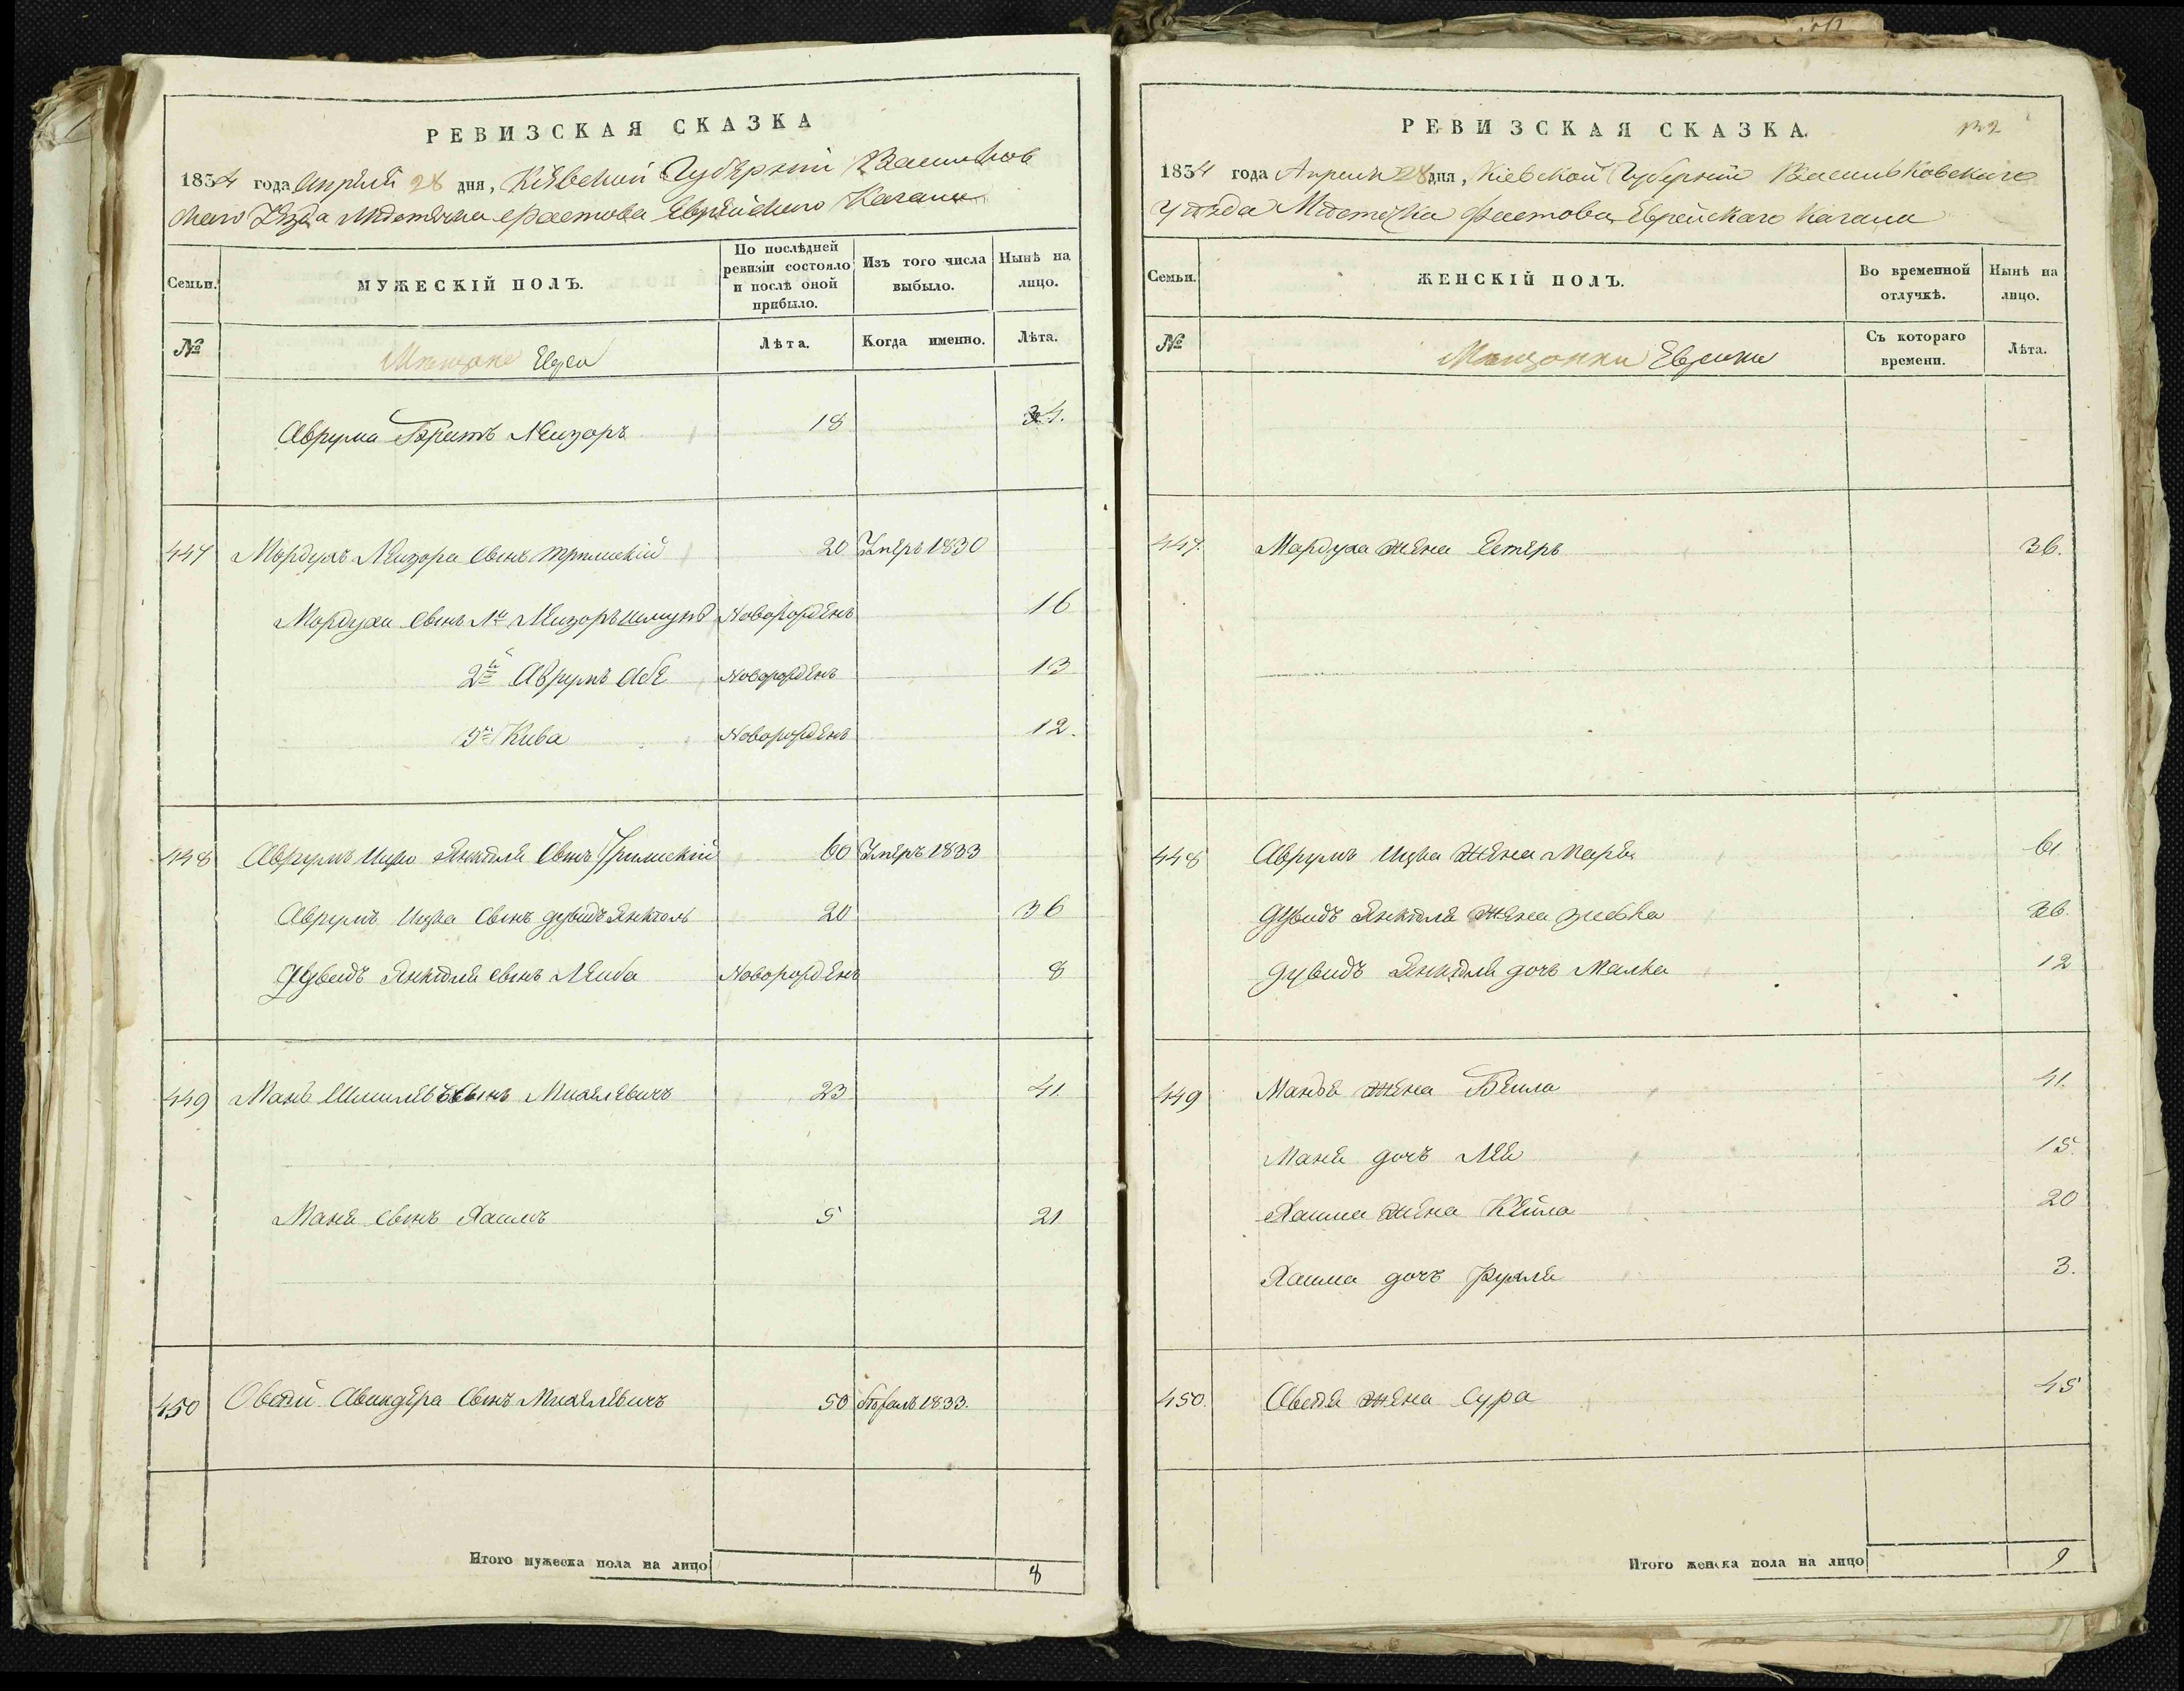 РЕВИЗСКАЯ СКАЗКА
1834 года Апреля 28 дня, Кіевской Губерніи Васильков
скаго Уезда Местечка Фастова Еврейскаго Кагала
Семьи.
МУЖЕСКІЙ ПОЛЪ.
По послѣдней ревизіи состояло и послѣ оной прибыло.
Изъ того числа выбыло.
Нынѣ на лицо.
№
Мещане Евреи
Лѣта.
Когда именно.
Лѣта.
Аврума Братъ Лейзоръ 18 34.
447 Мордухъ Лейзора сынъ 20 Умеръ 1830
Мордуха сынъ 1й Лейзоръ Новорожденъ 16
2й Аврумъ Абе Новорожденъ 13
3й Кива Новорожденъ 12.
448 Аврумъ Ицко Янкеля сынъ 60 Умеръ 1833
Аврумъ Ицка сынъ Дувидъ Янкель 20 36
Дувидъ Янкеля сынъ Лейба Новорожденъ 8
449 Мань сынъ 23 41.
Маня сынъ Хаимъ 5 21
450 Овсей сынъ 50 1833.
Итого мужеска пола на лицо 8
РЕВИЗСКАЯ СКАЗКА.
1834 года Апреля 28 дня, Кіевской Губерніи Васильковскаго
уезда Местечка Фастова Еврейскаго Кагала
Семьи.
ЖЕНСКІЙ ПОЛЪ.
Во временной отлучкѣ.
Нынѣ на лицо.
№
Мещанки Еврейки
Съ котораго времени.
Лѣта.
447. Мордуха жена Естеръ 36.
448 Аврумъ Ицка жена 61
Дувидъ Янкеля жена 36.
Дувидъ Янкеля дочь Малка 12
449 жена Бейла 41.
Маня дочь Лея 15.
Хаима жена Кейла 20
Хаима дочь Рухля 3.
450. Овсея жена Сура 45
Итого женска пола на лицо 9